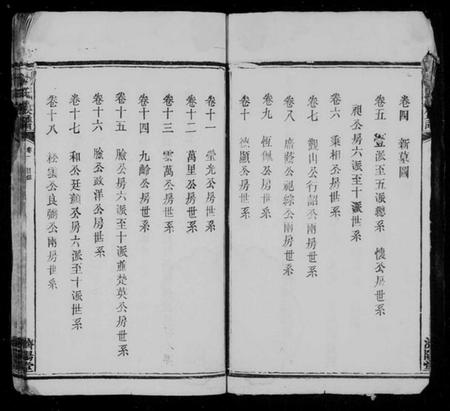 卷四 新墓圖
卷五 壹派至五派總系 懷公房世系
昶公房六派至十派世系
卷六 秉相公房世系
卷七 觀山公行韶公兩房世系
卷八 公祀綜公兩房世系
卷九 恆佩公房世系
卷十 德顯公房世系
卷十一 瑩光公房世系
卷十二 萬里公房世系
卷十三 雲萬公房世系
卷十四 九齡公房世系
卷十五 臉公房六派至十派並楚英公房世系
卷十六 臉公政洋公房世系
卷十七 和公廷勳公房六派至十派世系
卷十八 松雲公良弼公兩房世系
濟陽堂